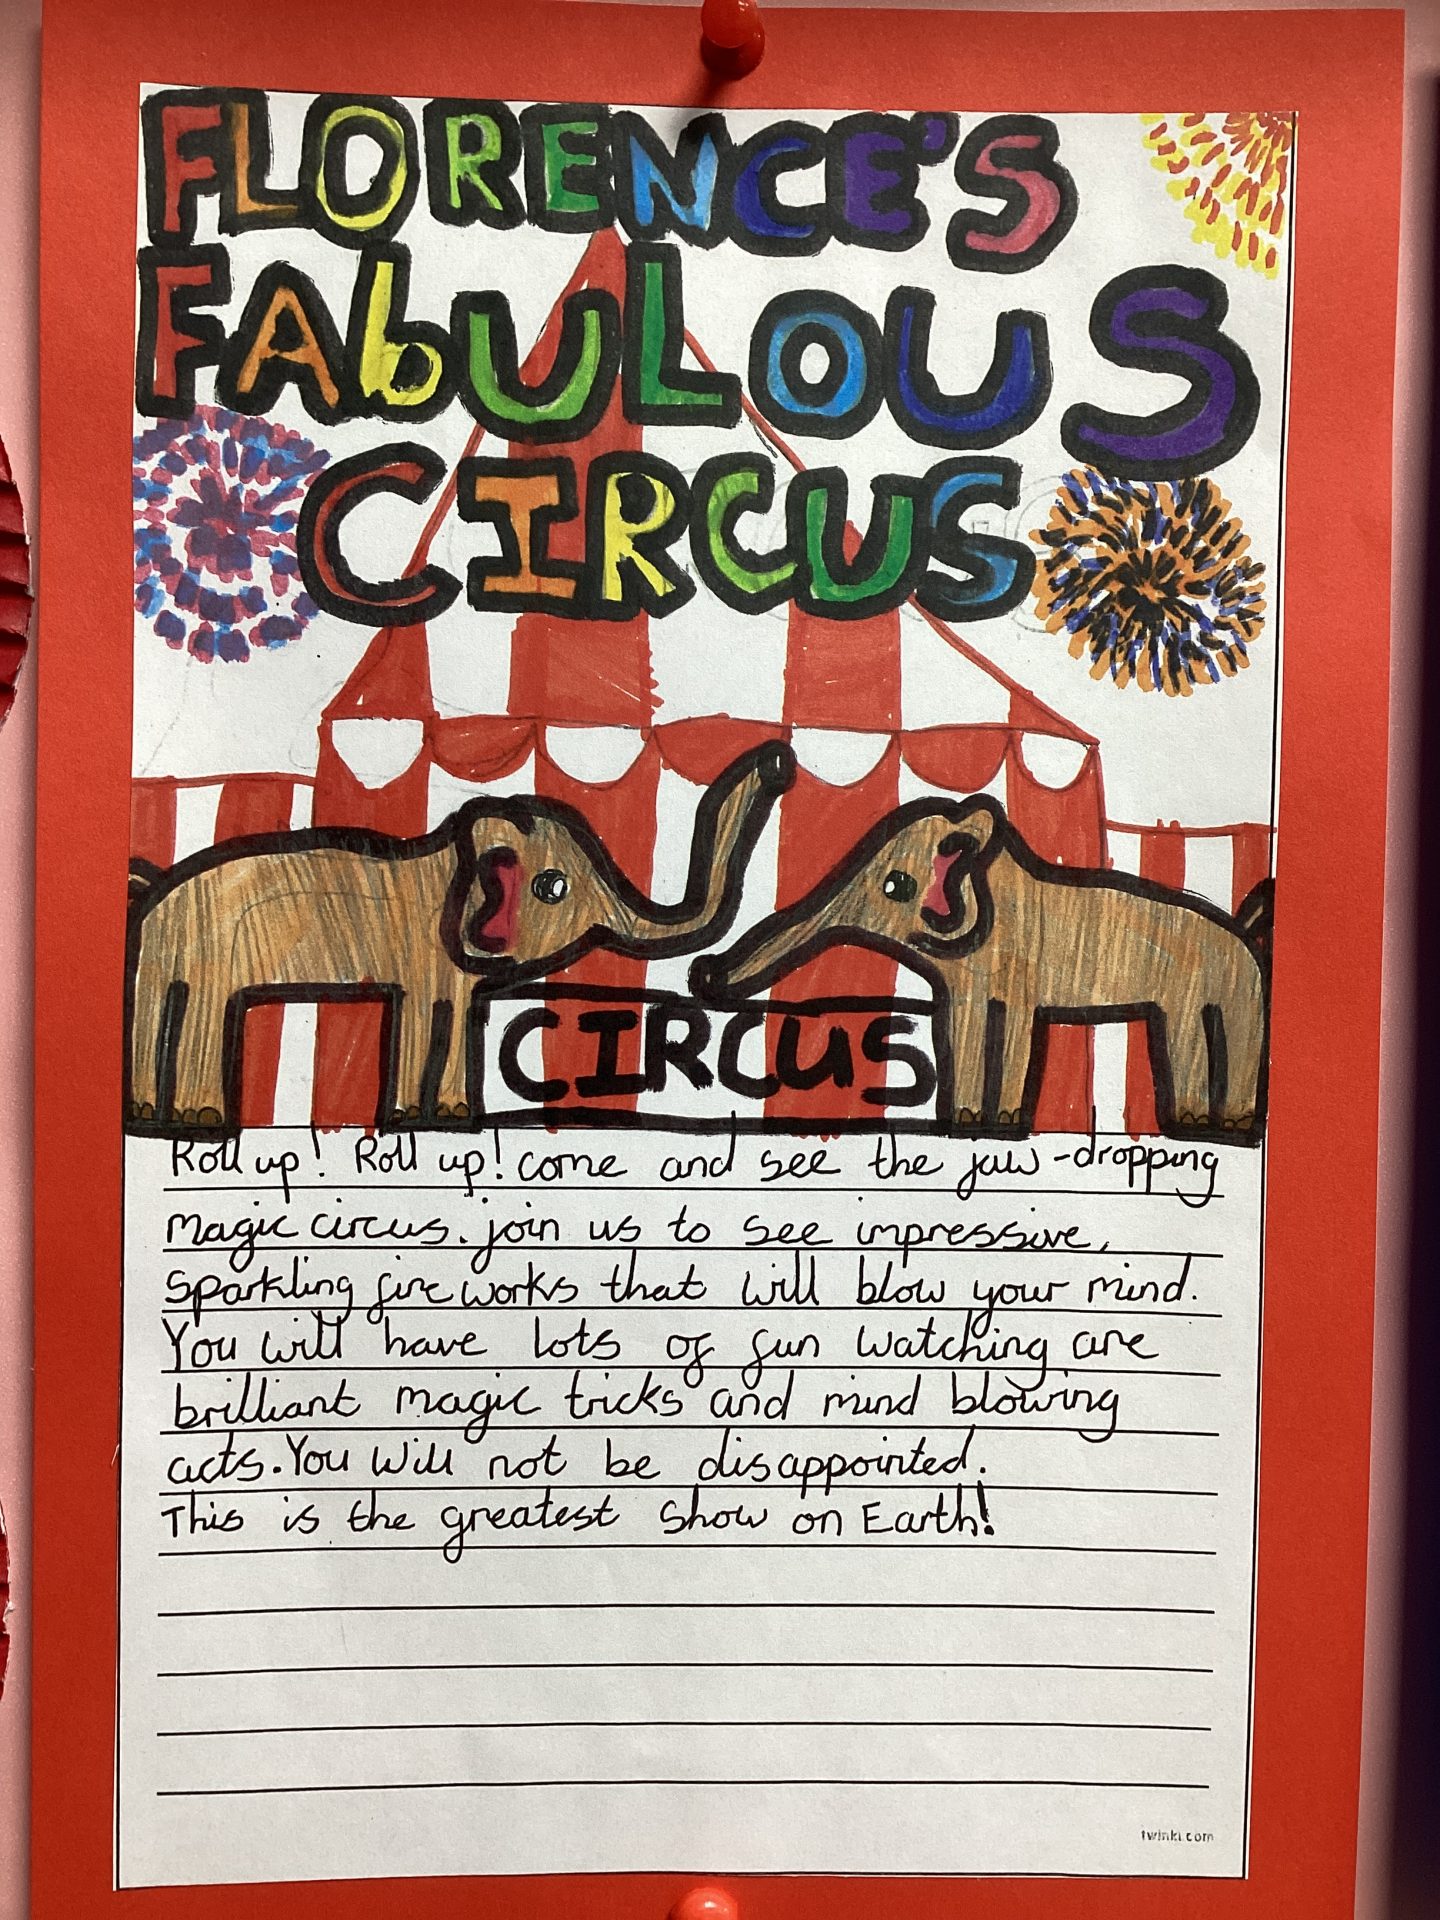 FLORENCE'S
FAbULOUS
CIRCUS
CIRCUS
Roll up! Roll up! come and see the jaw-dropping
magic circus. join us to see impressive,
sparkling fireworks that will blow your mind.
You will have lots of fun watching are
brilliant magic tricks and mind blowing
acts. You will not be disappointed.
This is the greatest show on Earth!
twinkl.com